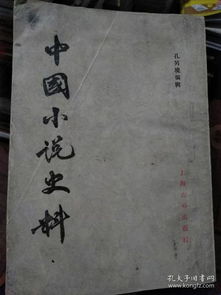 中國小说史料
孔另境編輯
上海古籍出版社
孔夫子旧书网